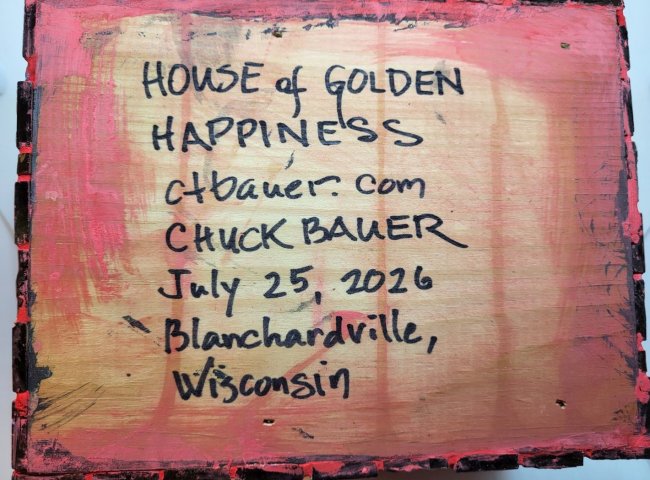 HOUSE of GOLDEN
HAPPINESS
ctbauer.com
CHUCK BAUER
July 25, 2026
Blanchardville,
Wisconsin